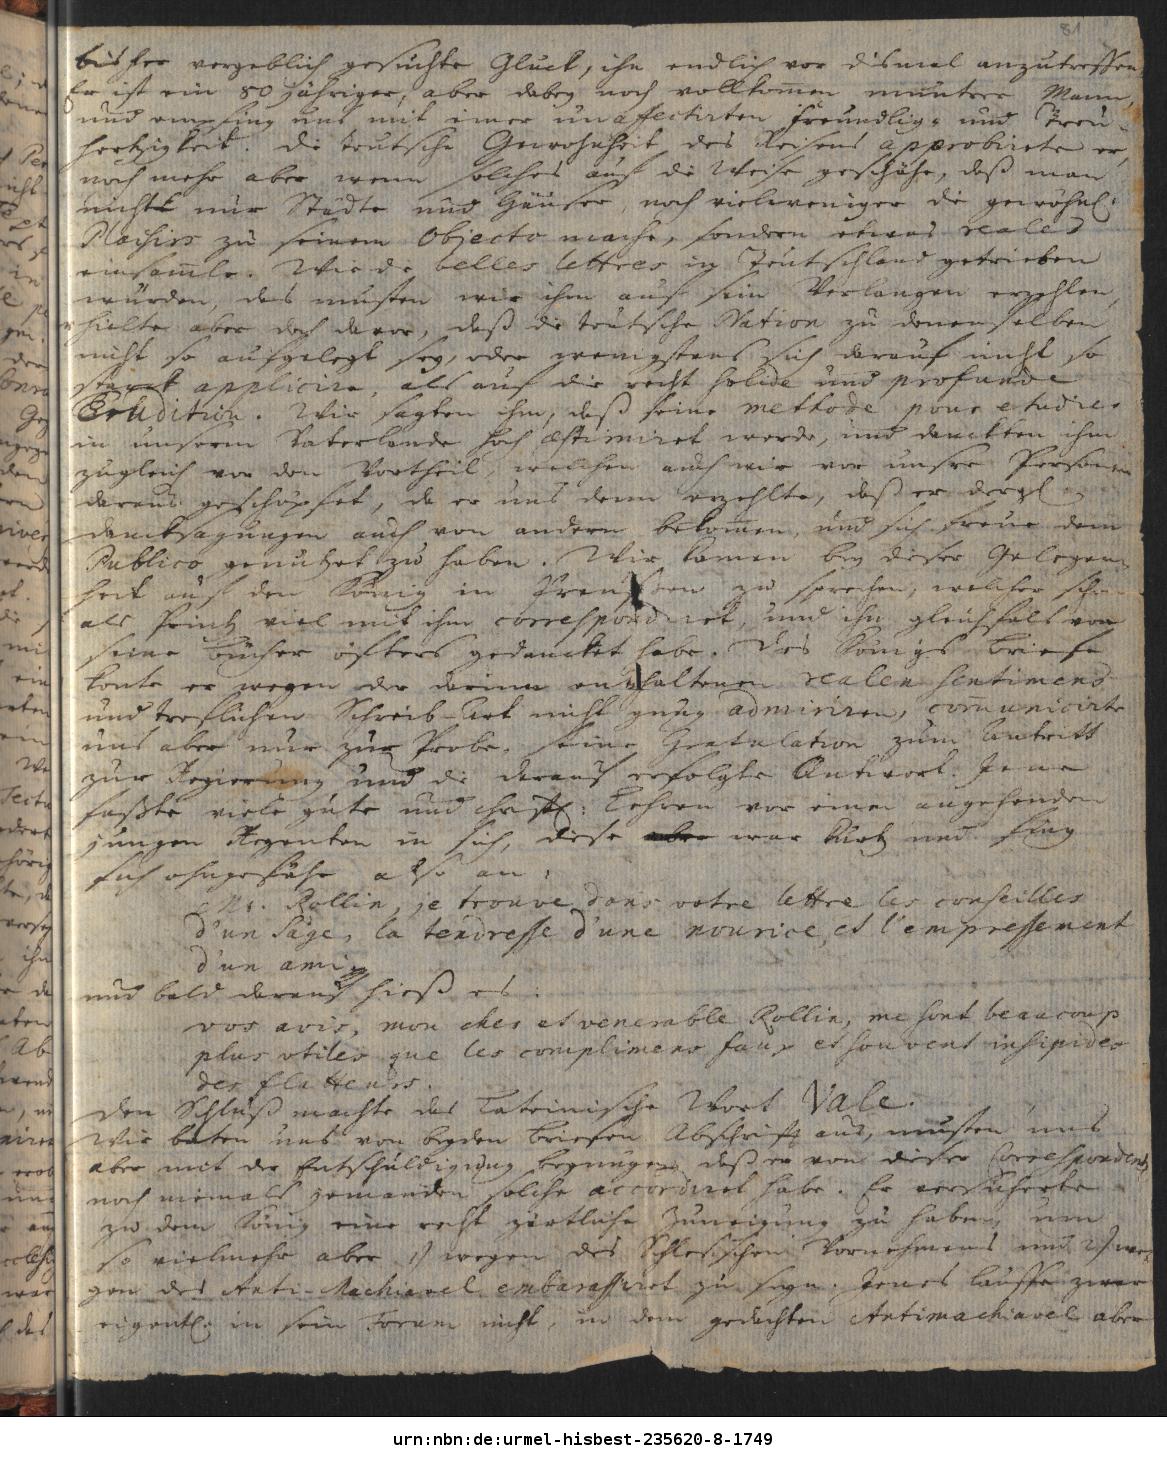 81
bisher vergeblich gesuchte Gluck, ihn endlich vor dismal anzutreffen.
Er ist ein 80 jähriger, aber dabey noch vollkom̅en muntrer Mann,
und empfing uns mit einer unaffectirten Freundlig- und Treu-
hertzigkeit. Die teutsche Gewohnheit des Reisens approbirete er,
noch mehr aber wenn solches auf die Weise geschähe, daß man
nicht nur Städte und Häuser, noch vielweniger die gewöhnl.
Plaisirs zu seinem Objecto mache, sondern etwas reales
einsam̅le. Wie die belles lettres in Teutschland getrieben
würden, das musten wir ihm auf sein Verlangen erzehlen,
hielte aber doch davor, daß die teutsche Nation zu denenselben
nicht so aufgelegt sey, oder wenigstens sich darauf nicht so
starck applicire, als auf die recht solide und profunde
Erudition. Wir sagten ihm, daß seine methode pour etudier
in unserm Vaterlande hoch æstimiret werde, und danckten ihm
zugleich vor den Vortheil, welchen auch wir vor unsre Personen
daraus geschöpfet, da er uns denn erzehlte, daß er dergl.
Dancksagungen auch von andern bekom̅en, und sich freue dem
Publico genutzet zu haben. Wir kamen bey dieser Gelegen-
heit auf den König in Preussen zu sprechen, welcher schon
als Printz viel mit ihm correspondiret, und ihm gleichfals vor
seine Bücher öfters gedancket habe. Des Königs Briefe
konte er wegen der darinn enthaltenen realen sentimens
und treflichen Schreib-Art nicht gnug admiriren, com̅unicirte
uns aber nur zur Probe, seine Gratulation zum Antritt
zur Regierung und die darauf erfolgte Antwort. Jene
faßte viele gute und christl. Lehren vor einen angehenden
jungen Regenten in sich, diese war kurtz und fing
sich ohngefähr also an:
Mr. Rollin, je trouve dans votre lettre les conseilles
d'un Sage, la tendresse d'une nourice, et l'empressement
d'un ami,
und bald darauf hieß es:
vos avis, mon cher et venerable Rollin, me sont beaucoup
plus utiles que les complimens faux et souvent insipides
des flatteurs.
Den Schluß machte das Lateinische Wort Vale.
Wir baten uns von beyden Briefen Abschrift aus, musten uns
aber mit der Entschuldigung begnügen, daß er von dieser Correspondentz
noch niemals jemanden solche accordiret habe. Er versicherte
zu dem König eine recht zärtliche Zuneigung zu haben, um
so vielmehr aber 1) wegen des Schlesischen Vornehmens und 2) we-
gen des Anti-Machiavel embarassiret zu seyn. Jenes lauffe zwar
eigentl. in sein Forum nicht, in dem gedachten Antimachiavel aber
urn:nbn:de:urmel-hisbest-235620-8-1749